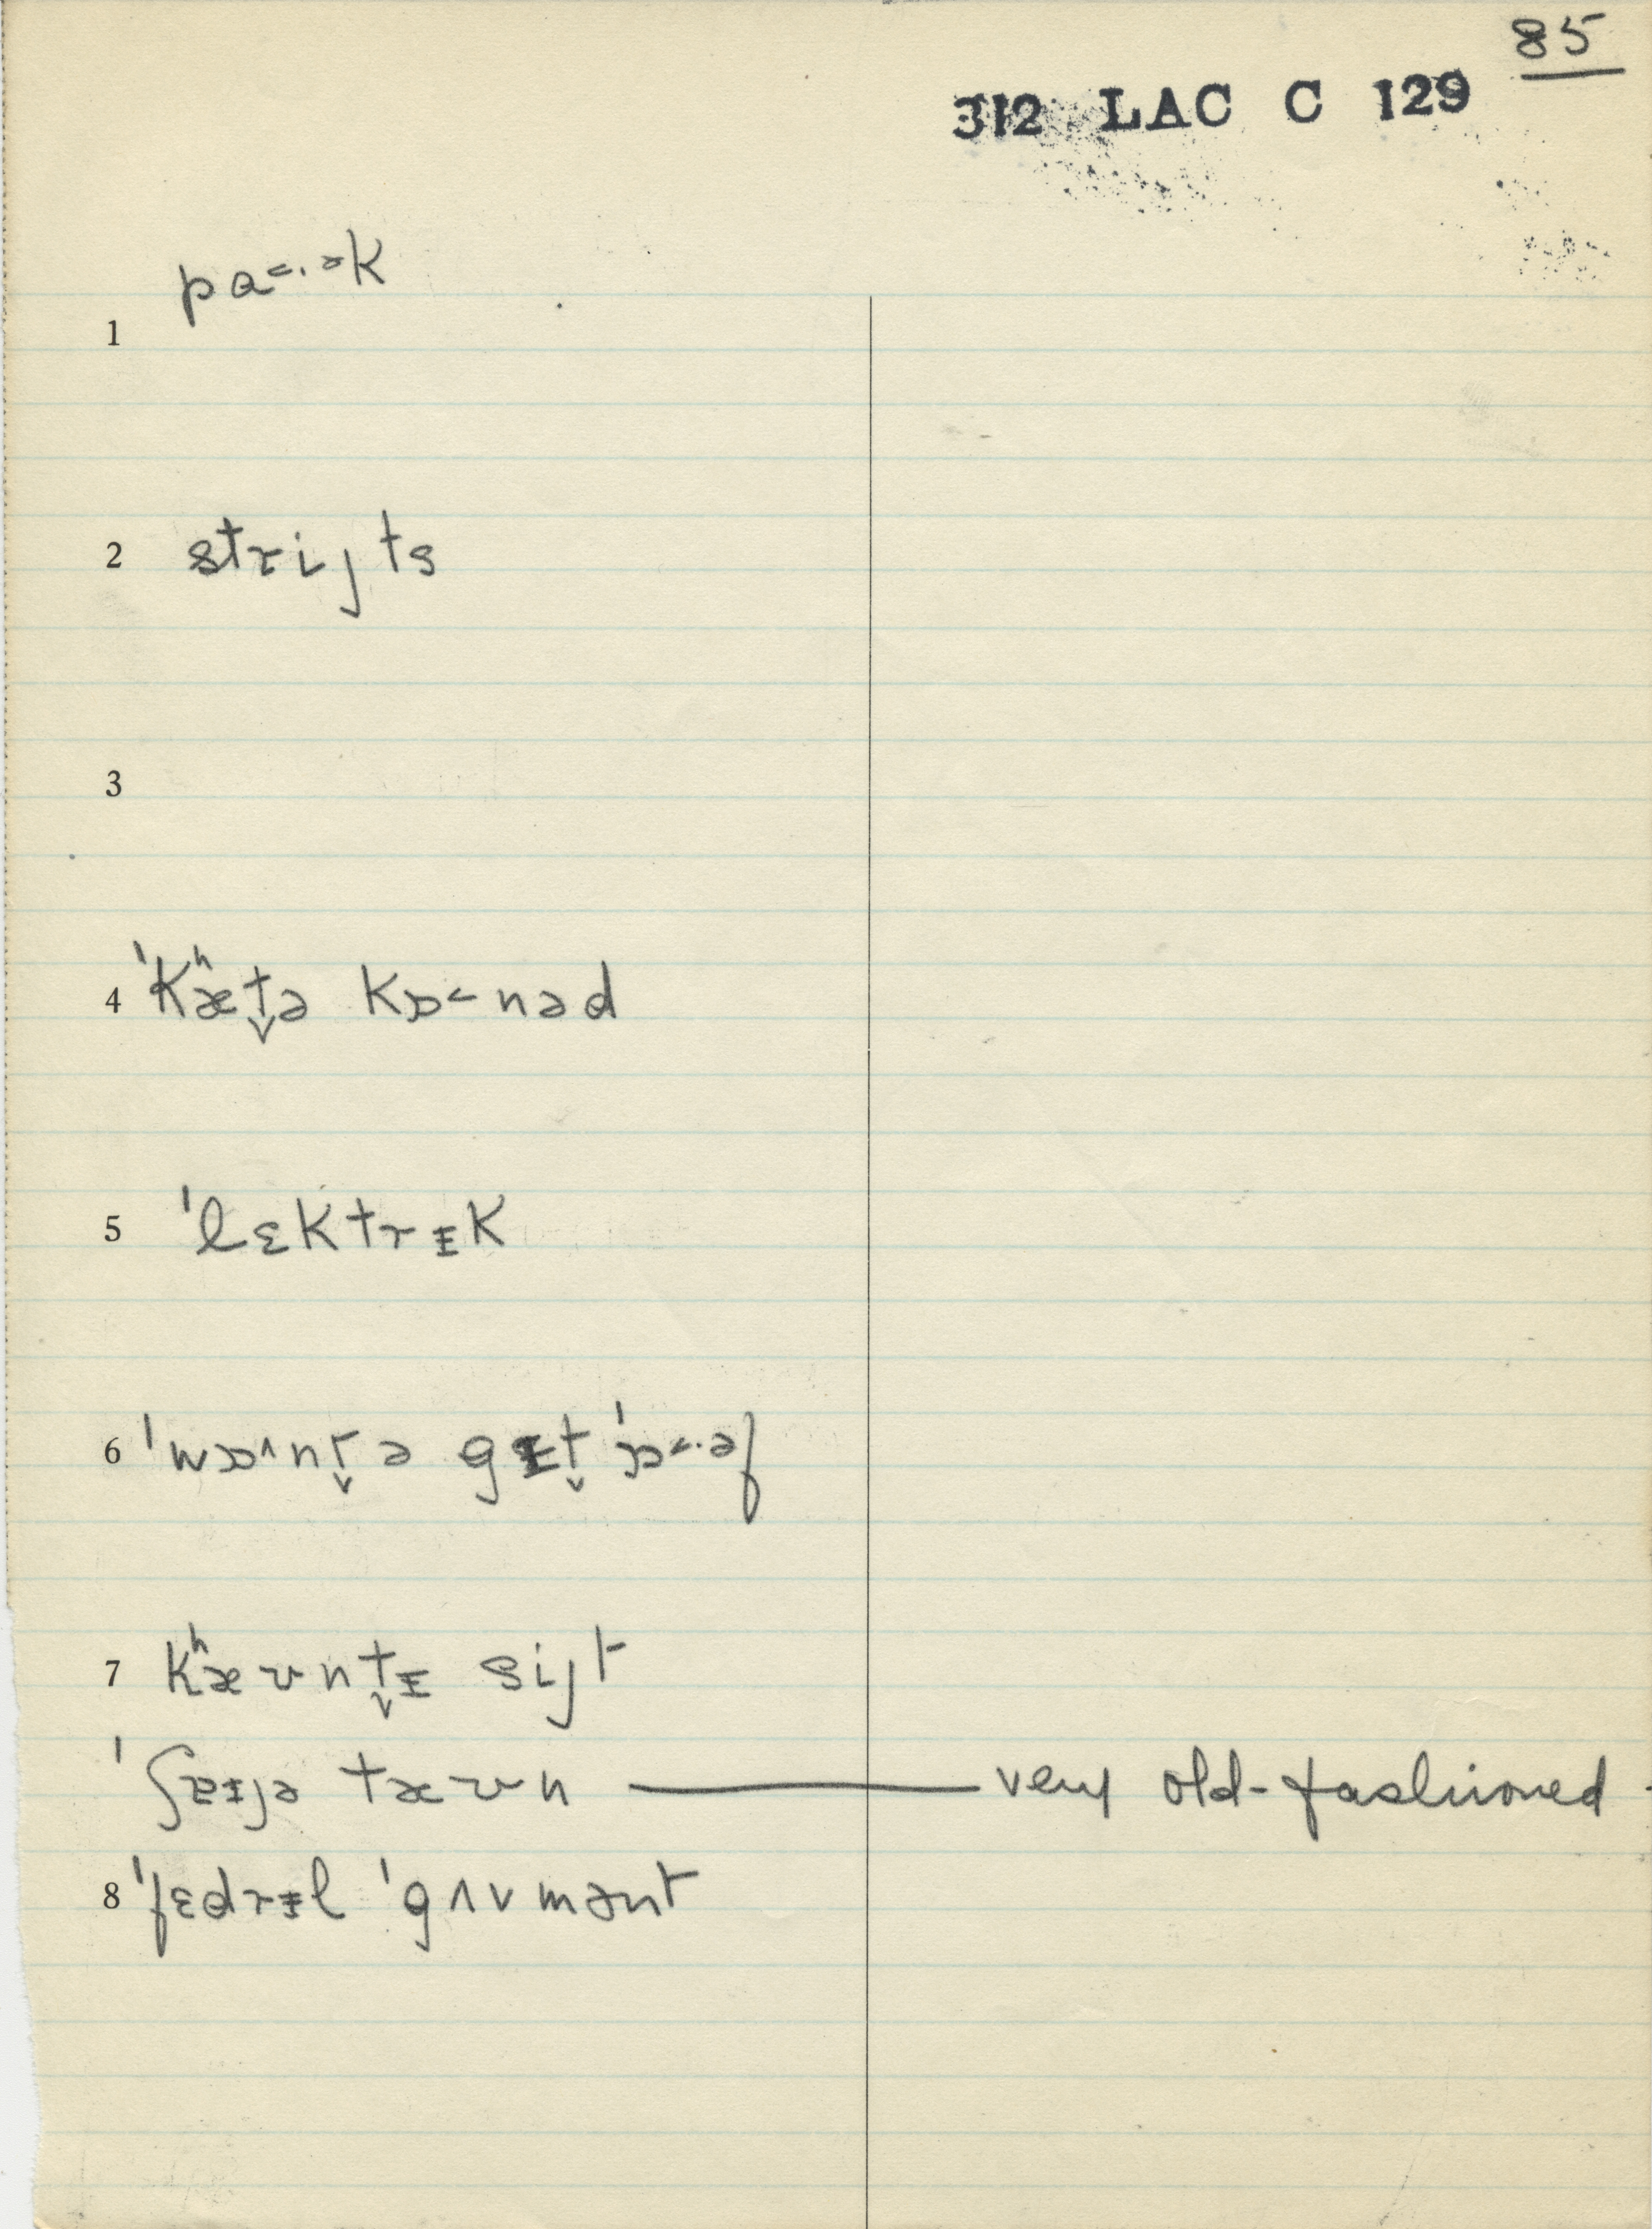 85
312 LAC C 129
pɑ˂·ᵊk
1
2 strijts
3
4 ˈkʰæt̬ə kɒ˂nəd
5 ˈlɛktrᵻk
6 ˈwɒ˄nt̬ə gᵻt̬ ˈɒ˂·əf
7 kʰæʊnt̬ᵻ sijt
ˈʃɐᵻjə tæʊn — very old-fashioned
8 ˈfɛdrᵻl ˈgʌvmənt